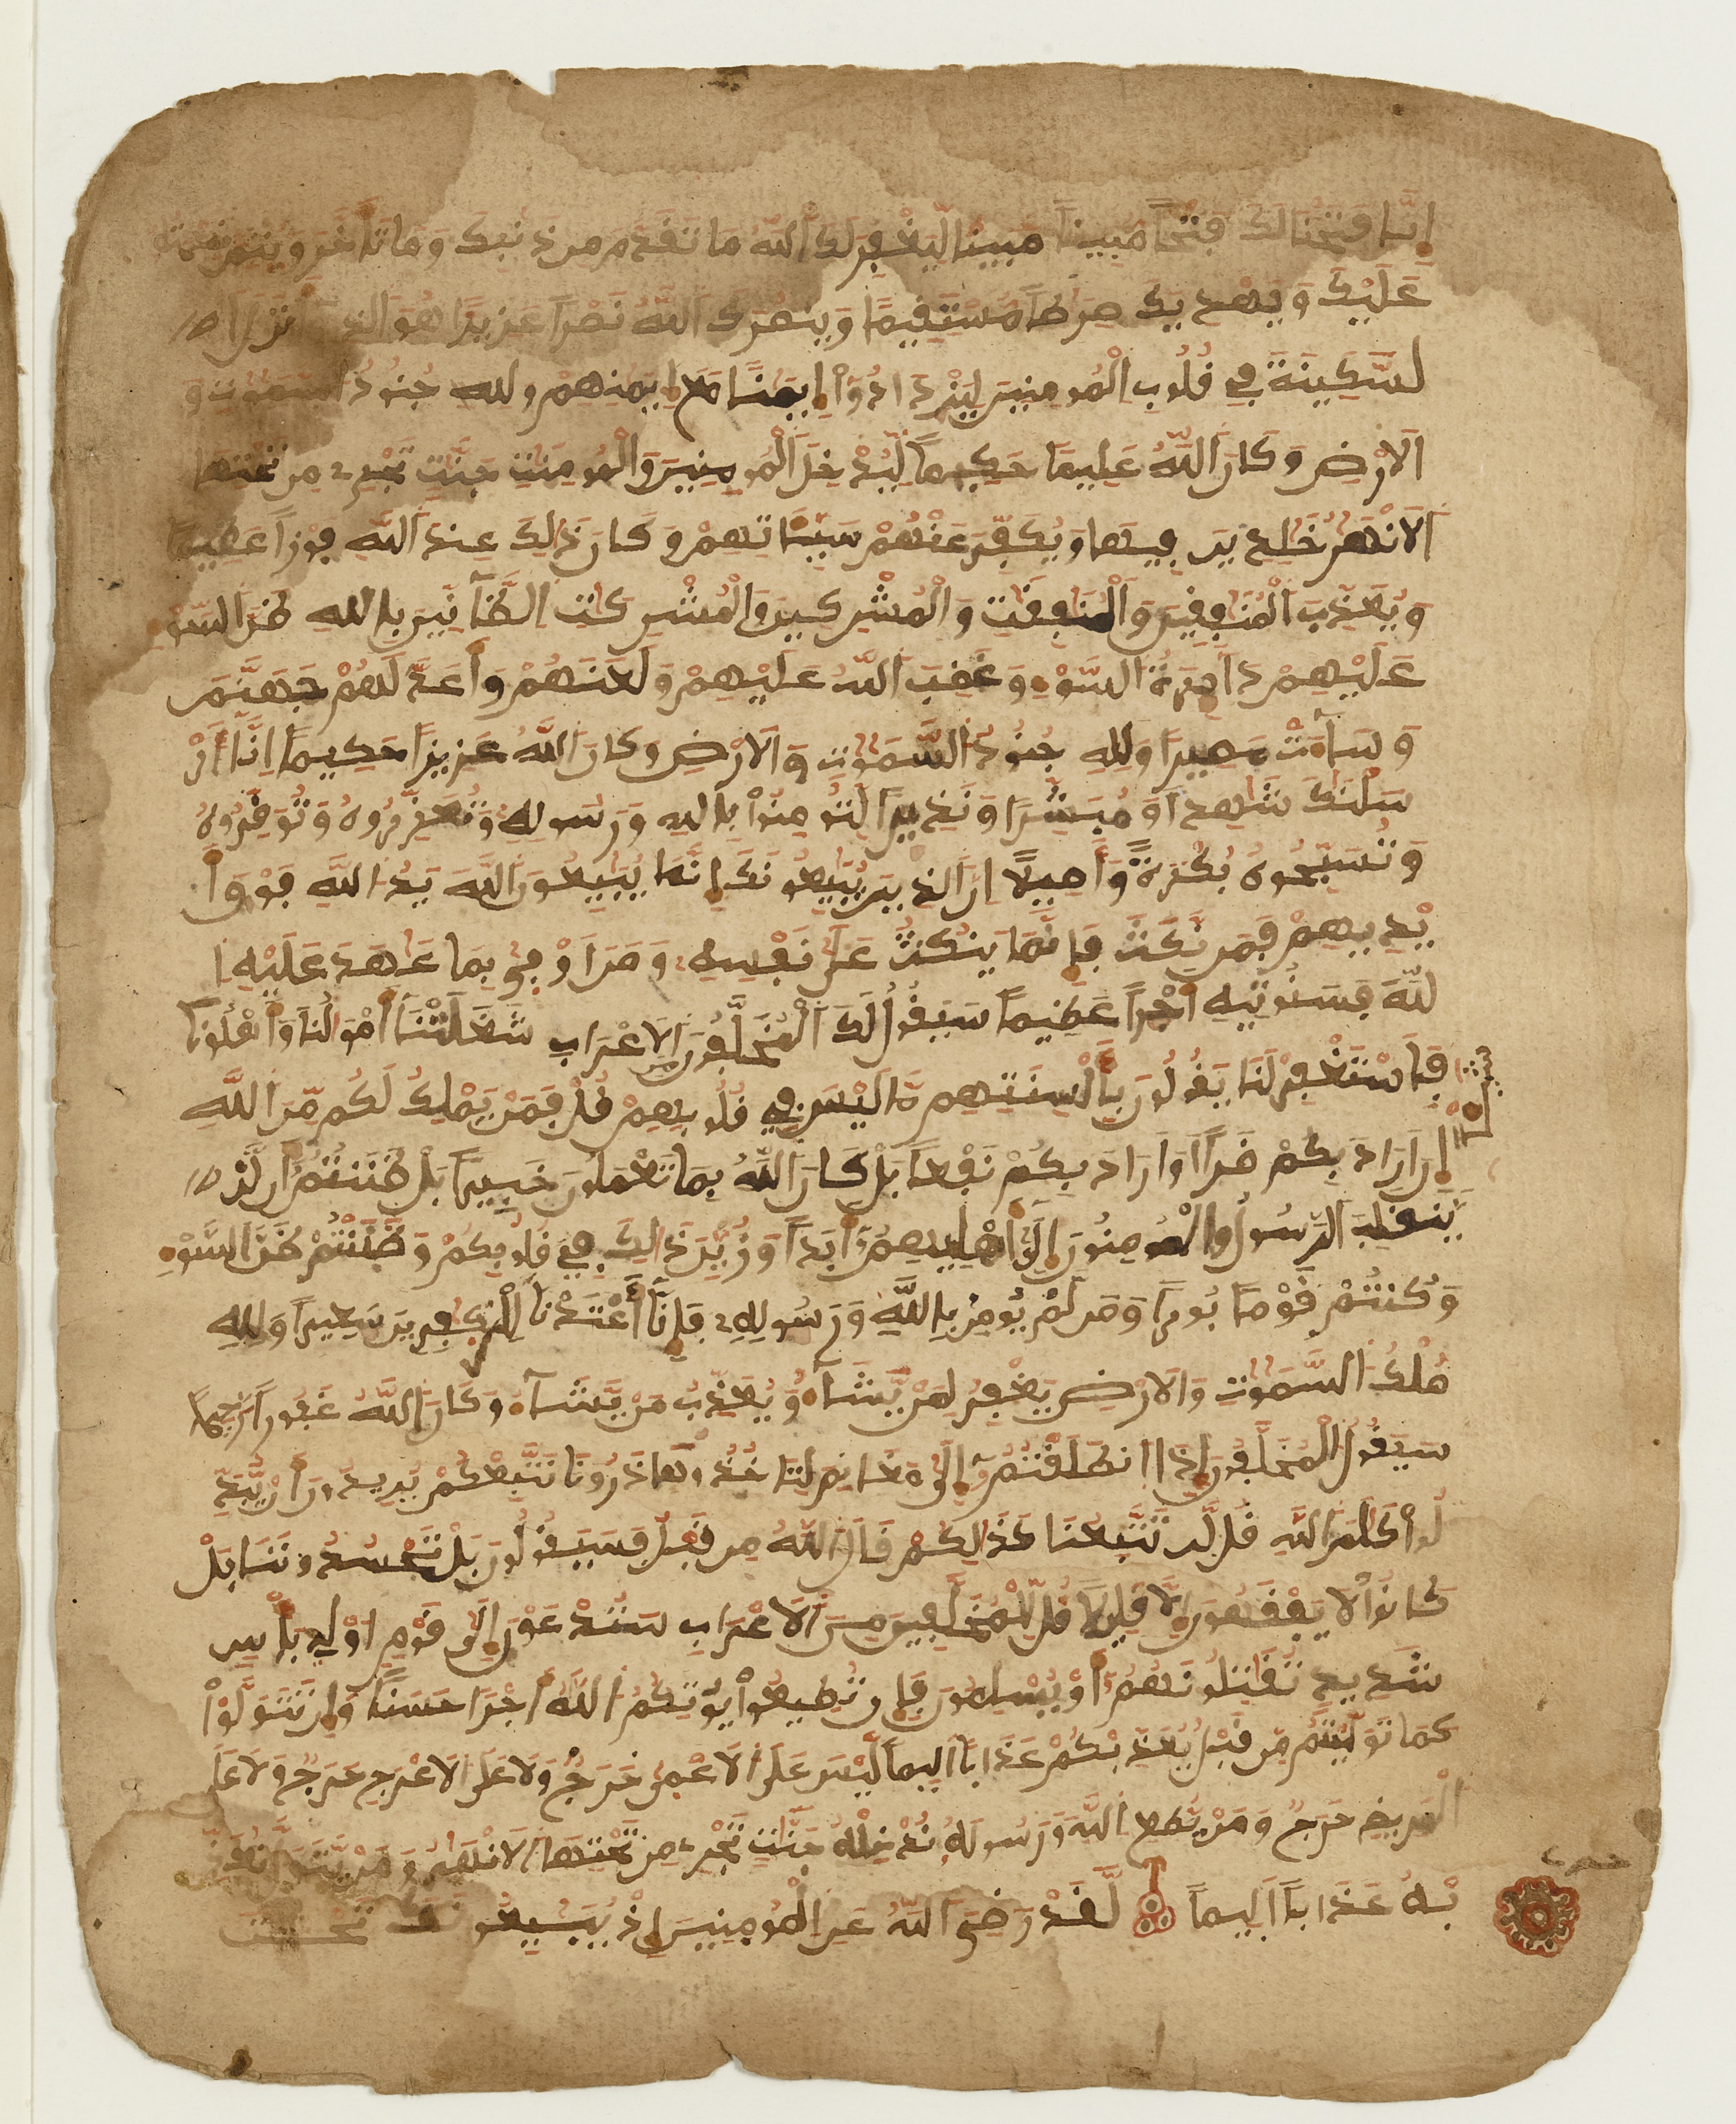 إِنَّا فَتَحْنَا لَكَ فَتْحاً مُّبِيناً مبينا لِّيَغْفِرَ لَكَ اَللَّهُ ما تَقَدَّمَ مِن ذَنبِكَ وَمَا تَأَخَّرَ وَيُتِمَّ نِعْمَتَهُ
عَلَيْكَ وَيَهْدِيَكَ صِرَٰطاً مُّسْتَقِيماً وَيَنصُرَكَ اَللَّهُ نَصْراً عَزِيزاً هُوَ اَلذِے أَنزَلَ ا
لسَّكِينَةَ فِے قُلُوبِ اِلْمُومِنِينَ لِيَزْدَادُوٓاْ إِيمَٰناً مَّعَ إِيمَٰنِهِمْ وللهِ جُنُودُ اُلسَّمَٰوَٰتِ وَ
اَلَارْضِ وَكَانَ اَللَّهُ عَلِيماً حَكِيماً لِّيُدْخِلَ اَلْمُومِنِينَ وَالْمُومِنَٰتِ جَنَّٰتٍ تَجْرِے مِن تَحْتِهَا
اَلَانْهَٰرُ خَٰلِدِينَ فِيهَا وَيُكَفِّرَ عَنْهُمْ سَيِّـَٔاتِهِمْ وَكَانَ ذَٰلِكَ عِندَ اَللَّهِ فَوْزاً عَظِيماً
وَيُعَذِّبَ اَلْمُنَٰفِقِينَ وَالْمُنَٰفِقَٰتِ وَالْمُشْرِكِينَ وَالْمُشْرِكَٰتِ اِلظَّآنِّينَ بِاللهِ ظَنَّ اَلسَّوْءِ
عَلَيْهِمْ دَآئِرَةُ اُلسَّوْءِ وَغَضِبَ اَللَّهُ عَلَيْهِمْ وَلَعَنَهُمْ وَأَعَدَّ لَهُمْ جَهَنَّمَ
وَسَآءَتْ مَصِيراً وَلِلهِ جُنُودُ اُلسَّمَٰوَٰتِ وَالَارْضِ وَكَانَ اَللَّهُ عَزِيزاً حَكِيماً اِنَّآ أَرْ
سَلْنَٰكَ شَٰهِداً وَمُبَشِّراً وَنَذِيراً لِّتُومِنُواْ بِاللهِ وَرَسُولِهِۦ وَتُعَزِّرُوهُ وَتُوَقِّرُوهُ
وَتُسَبِّحُوهُ بُكْرَةً وَأَصِيلًا اِنَّ اَلذِينَ يُبَايِعُونَكَ إِنَّمَا يُبَايِعُونَ اَللَّهَ يَدُ اُللَّهِ فَوْقَ أَ
يْدِيهِمْ فَمَن نَّكَثَ فَإِنَّمَا يَنكُثُ عَلَىٰ نَفْسِهِۦ وَمَنَ اَوْفىٰ بِمَا عَٰهَدَ عَلَيْهِ ا
للَّهَ فَسَنُوتِيهِ أَجْراً عَظِيماً سَيَقُولُ لَكَ اَلْمُخَلَّفُونَ مِنَ اَلَاعْرَابِ شَغَلَتْنَآ أَمْوَٰلُنَا وَأَهْلُونَا
فَاسْتَغْفِرْ لَنَا يَقُولُونَ بِأَلْسِنَتِهِم مَّا لَيْسَ فِے قُلُوبِهِمْ قُلْ فَمَنْ يَّمْلِكُ لَكُم مِّنَ اَللَّهِ
شَيْـًٔا
إِنَ اَرَادَ بِكُمْ ضَرّاً اَوَ اَرَادَ بِكُمْ نَفْعاً بَلْ كَانَ اَللَّهُ بِمَا تَعْمَلُونَ خَبِيراً بَلْ ظَنَنتُمُۥٓ أَن لَّنْ
يَّنقَلِبَ اَلرَّسُولُ وَالْمُومِنُونَ إِلَىٰٓ أَهْلِيهِمُۥٓ أَبَداً وَزُيِّنَ ذَٰلِكَ فِے قُلُوبِكُمْ وَظَنَنتُمْ ظَنَّ اَلسَّوْءِ
وَكُنتُمْ قَوْماً بُوراً وَمَن لَّمْ يُومِنۢ بِاللَّهِ وَرَسُولِهِۦ فَإِنَّآ أَعْتَدْنَا لِلْكَٰفِرِينَ سَعِيراً وَلِلهِ
مُلْكُ اُلسَّمَٰوَٰتِ وَالَارْضِ يَغْفِرُ لِمَنْ يَّشَآءُ وَيُعَذِّبُ مَنْ يَّشَآءُ وَكَانَ اَللَّهُ غَفُوراً رَّحِيماً
سَيَقُولُ اُلْمُخَلَّفُونَ إِذَا اَنطَلَقْتُمُۥٓ إِلَىٰ مَغَانِمَ لِتَاخُذُوهَا ذَرُونَا نَتَّبِعْكُمْ يُرِيدُونَ أَنْ يُّبَدِّ
لُواْ كَلَٰمَ اَللَّهِ قُل لَّن تَتَّبِعُونَا كَذَٰلِكُمْ قَالَ اَللَّهُ مِن قَبْلُ فَسَيَقُولُونَ بَلْ تَحْسُدُونَنَا بَلْ
كَانُواْ لَا يَفْقَهُونَ إِلَّا قَلِيلًا قُل لِّلْمُخَلَّفِينَ مِنَ اَلَاعْرَابِ سَتُدْعَوْنَ إِلَىٰ قَوْمٍ اُوْلِے بَأْسٍ
شَدِيدٍ تُقَٰتِلُونَهُمُۥٓ أَوْ يُسْلِمُونَ فَإِن تُطِيعُواْ يُوتِكُمُ اُللَّهُ أَجْراً حَسَناً وَإِن تَتَوَلَّوْاْ
كَمَا تَوَلَّيْتُم مِّن قَبْلُ يُعَذِّبْكُمْ عَذَاباً اَلِيماً لَّيْسَ عَلَى اَلَاعْمىٰ حَرَجٌ وَلَا عَلَى اَلَاعْرَجِ حَرَجٌ وَلَا عَلَى
اَلْمَرِيضِ حَرَجٌ وَمَنْ يُّطِعِ اِللَّهَ وَرَسُولَهُۥ نُدْخِلْهُ جَنَّٰتٍ تَجْرِے مِن تَحْتِهَا اَلَانْهَٰرُ وَمَنْ يَّتَوَلَّ نُعَذِّ
بْهُ عَذَاباً اَلِيماً لَّقَدْ رَضِيَ اَللَّهُ عَنِ اِلْمُومِنِينَ إِذْ يُبَايِعُونَكَ تَحْتَ